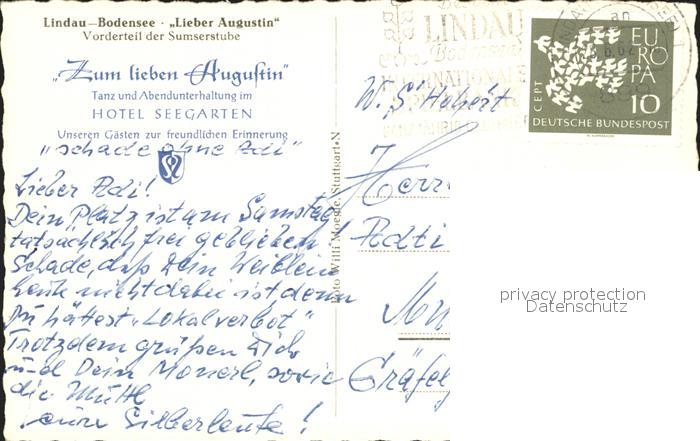 Lindau—Bodensee · „Lieber Augustin“
Vorderteil der Sumserstube
„Zum lieben Augustin“
Tanz und Abendunterhaltung im
HOTEL SEEGARTEN
Unseren Gästen zur freundlichen Erinnerung
„schade ohne Adi“
Lieber Adi!
Dein Platz ist am Samstag
tatsächlich frei geblieben!
Schade, daß Dein Weiblein
heute nicht dabei ist, denn
Du hättest „Lokalverbot“
Trotzdem grüßen Dich
und Dein Monerl, sowie
die Mutti
eure Silberleute!
Foto Willi Moegle, Stuttgart-N
LINDAU
Bodensee
INTERNATIONALE
EUROPA
CEPT
10
DEUTSCHE BUNDESPOST
W. S' Hubert
Herr
Adi
Mün
Gräfel
privacy protection
Datenschutz